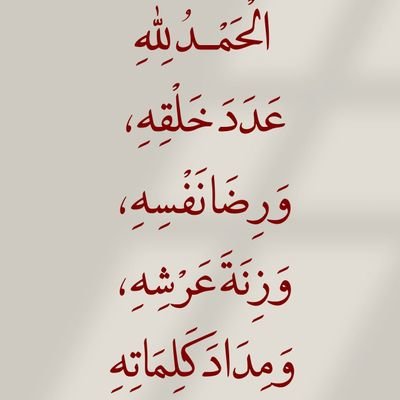 الْحَمْـدُ لِلَّهِ
عَدَدَ خَلْقِهِ،
وَرِضَا نَفْسِهِ،
وَزِنَةَ عَرْشِهِ،
وَمِدَادَ كَلِمَاتِهِ